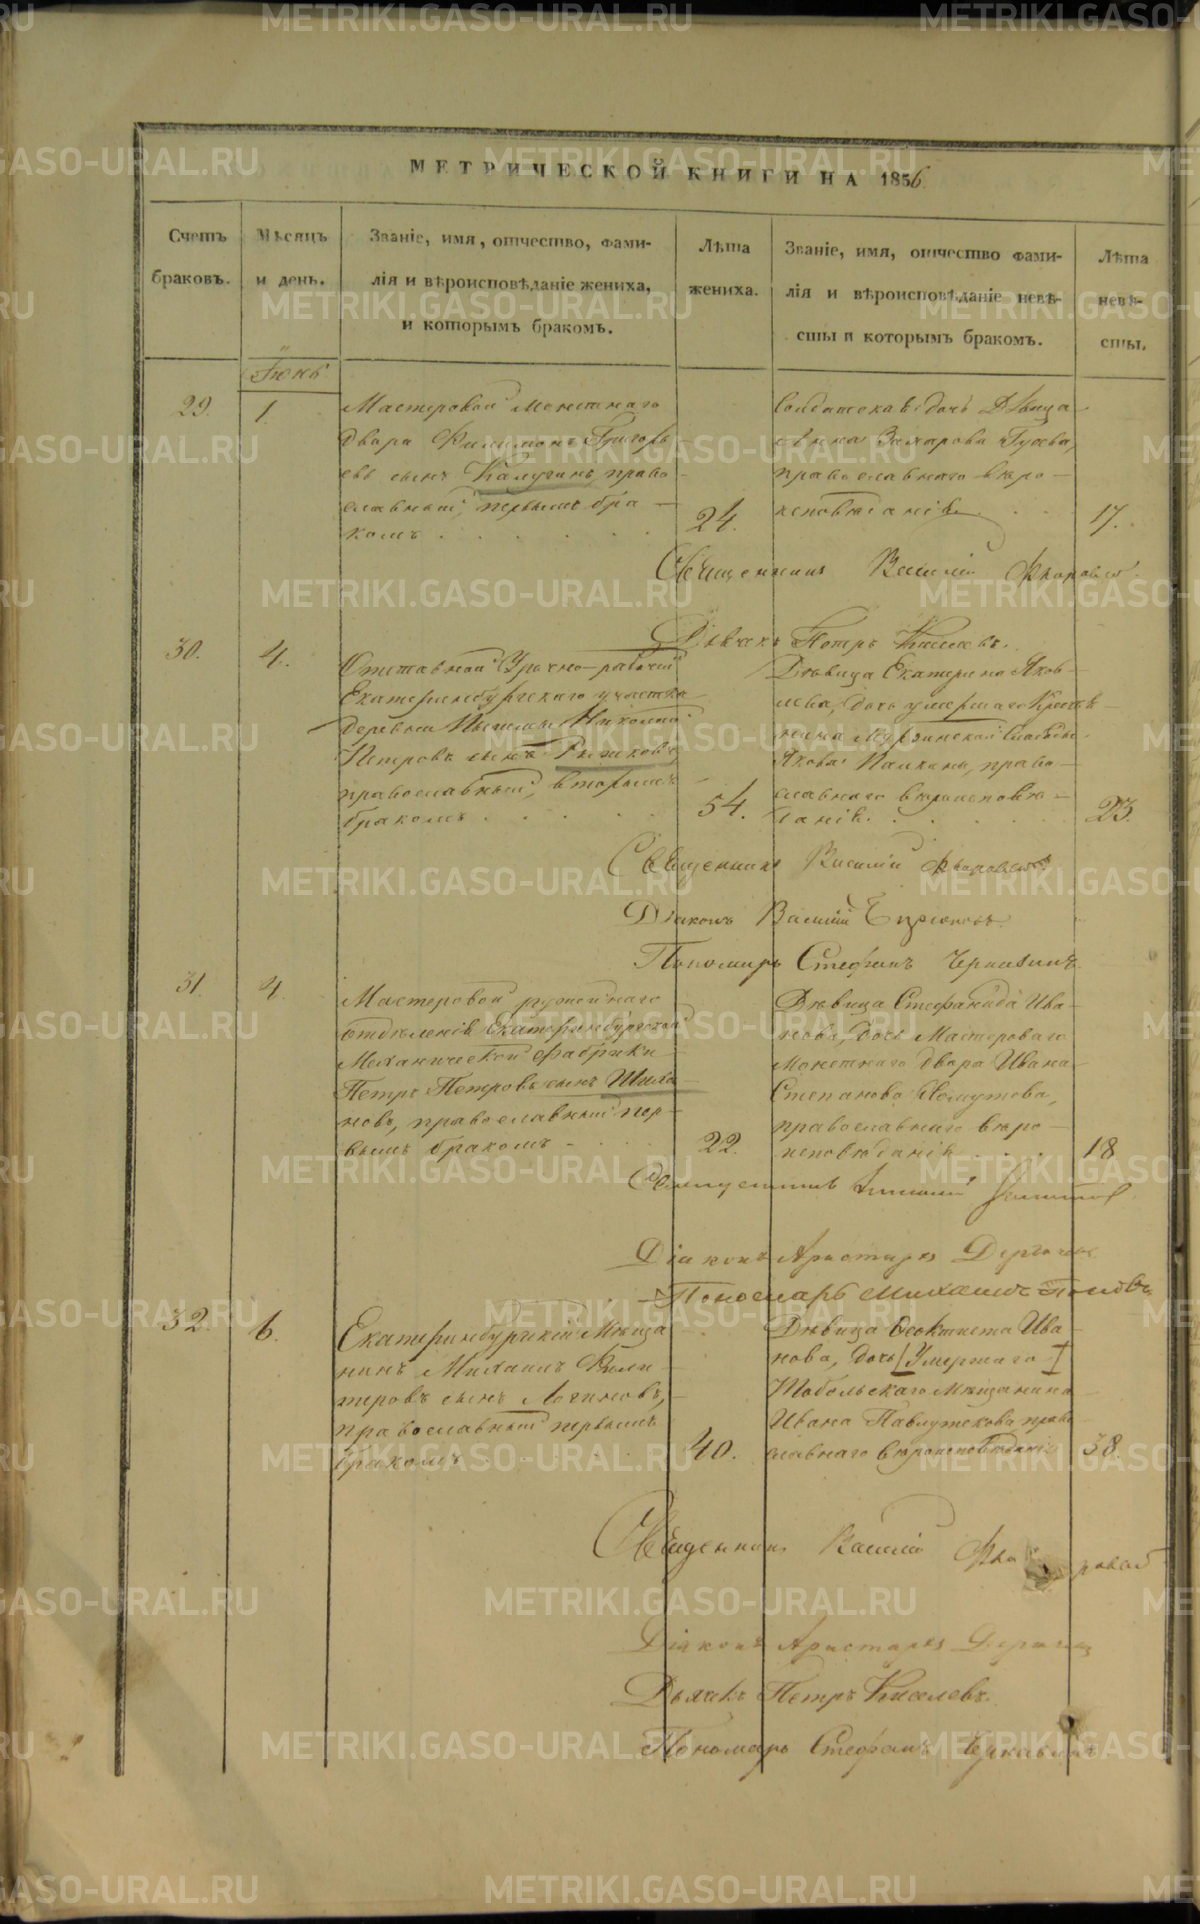 МЕТРИЧЕСКОЙ КНИГИ НА 1856.
Счетъ браковъ.
Мѣсяцъ и день.
Званіе, имя, отчество, фами-
лія и вѣроисповѣданіе жениха,
и которымъ бракомъ.
Лѣта жениха.
Званіе, имя, отчество фами-
лія и вѣроисповѣданіе невѣ-
сты и которымъ бракомъ.
Лѣта невѣ-
сты.
Іюнь
29.
1.
Мастеровой Монетнаго
двора Филимонъ Григорь
евъ сынъ Калугинъ, право
славный, первымъ бра
комъ
24.
Солдатская дочь Дѣвица
Захарова Гусева,
православнаго вѣро
исповѣданія
17.
Священникъ Василій
Дьячекъ Петръ Киселевъ.
30.
4.
Отставной Урочно-рабочій
Екатеринбургскаго участка
деревни Николай
Петровъ сынъ Рыжковъ,
православный, вторымъ
бракомъ
54.
Дѣвица Екатерина Яков
лева, дочь умершаго Кресть
янина Мурзинской Слободы
Якова православнаго вѣроисповѣ
данія.
23.
Священникъ Василій
Діаконъ Василій
Пономарь Стефанъ
31.
4.
Мастеровой ружейнаго
отдѣленія Екатеринбургской
Механической фабрики
Петръ Петровъ сынъ Шиха
новъ, православный пер
вымъ бракомъ
22.
Дѣвица Стефанида Ива
нова, дочь Мастероваго
Монетнаго двора Ивана
Степанова
православнаго вѣро
исповѣданія
18
Священникъ
Діаконъ Аристархъ
Пономарь Михаилъ Поповъ
32.
6.
Екатеринбургскій Мѣща
нинъ Михаилъ
сынъ Логиновъ,
православный первымъ
бракомъ
40.
Дѣвица Ѳеоктиста Ива
нова, дочь [Умершаго]
Тобольскаго Мѣщанина
Ивана Павлушскова право
славнаго вѣроисповѣданія
38.
Священникъ Василій
Діаконъ Аристархъ
Дьячекъ Петръ Киселевъ.
Пономарь Стефанъ
METRIKI.GASO-URAL.RU